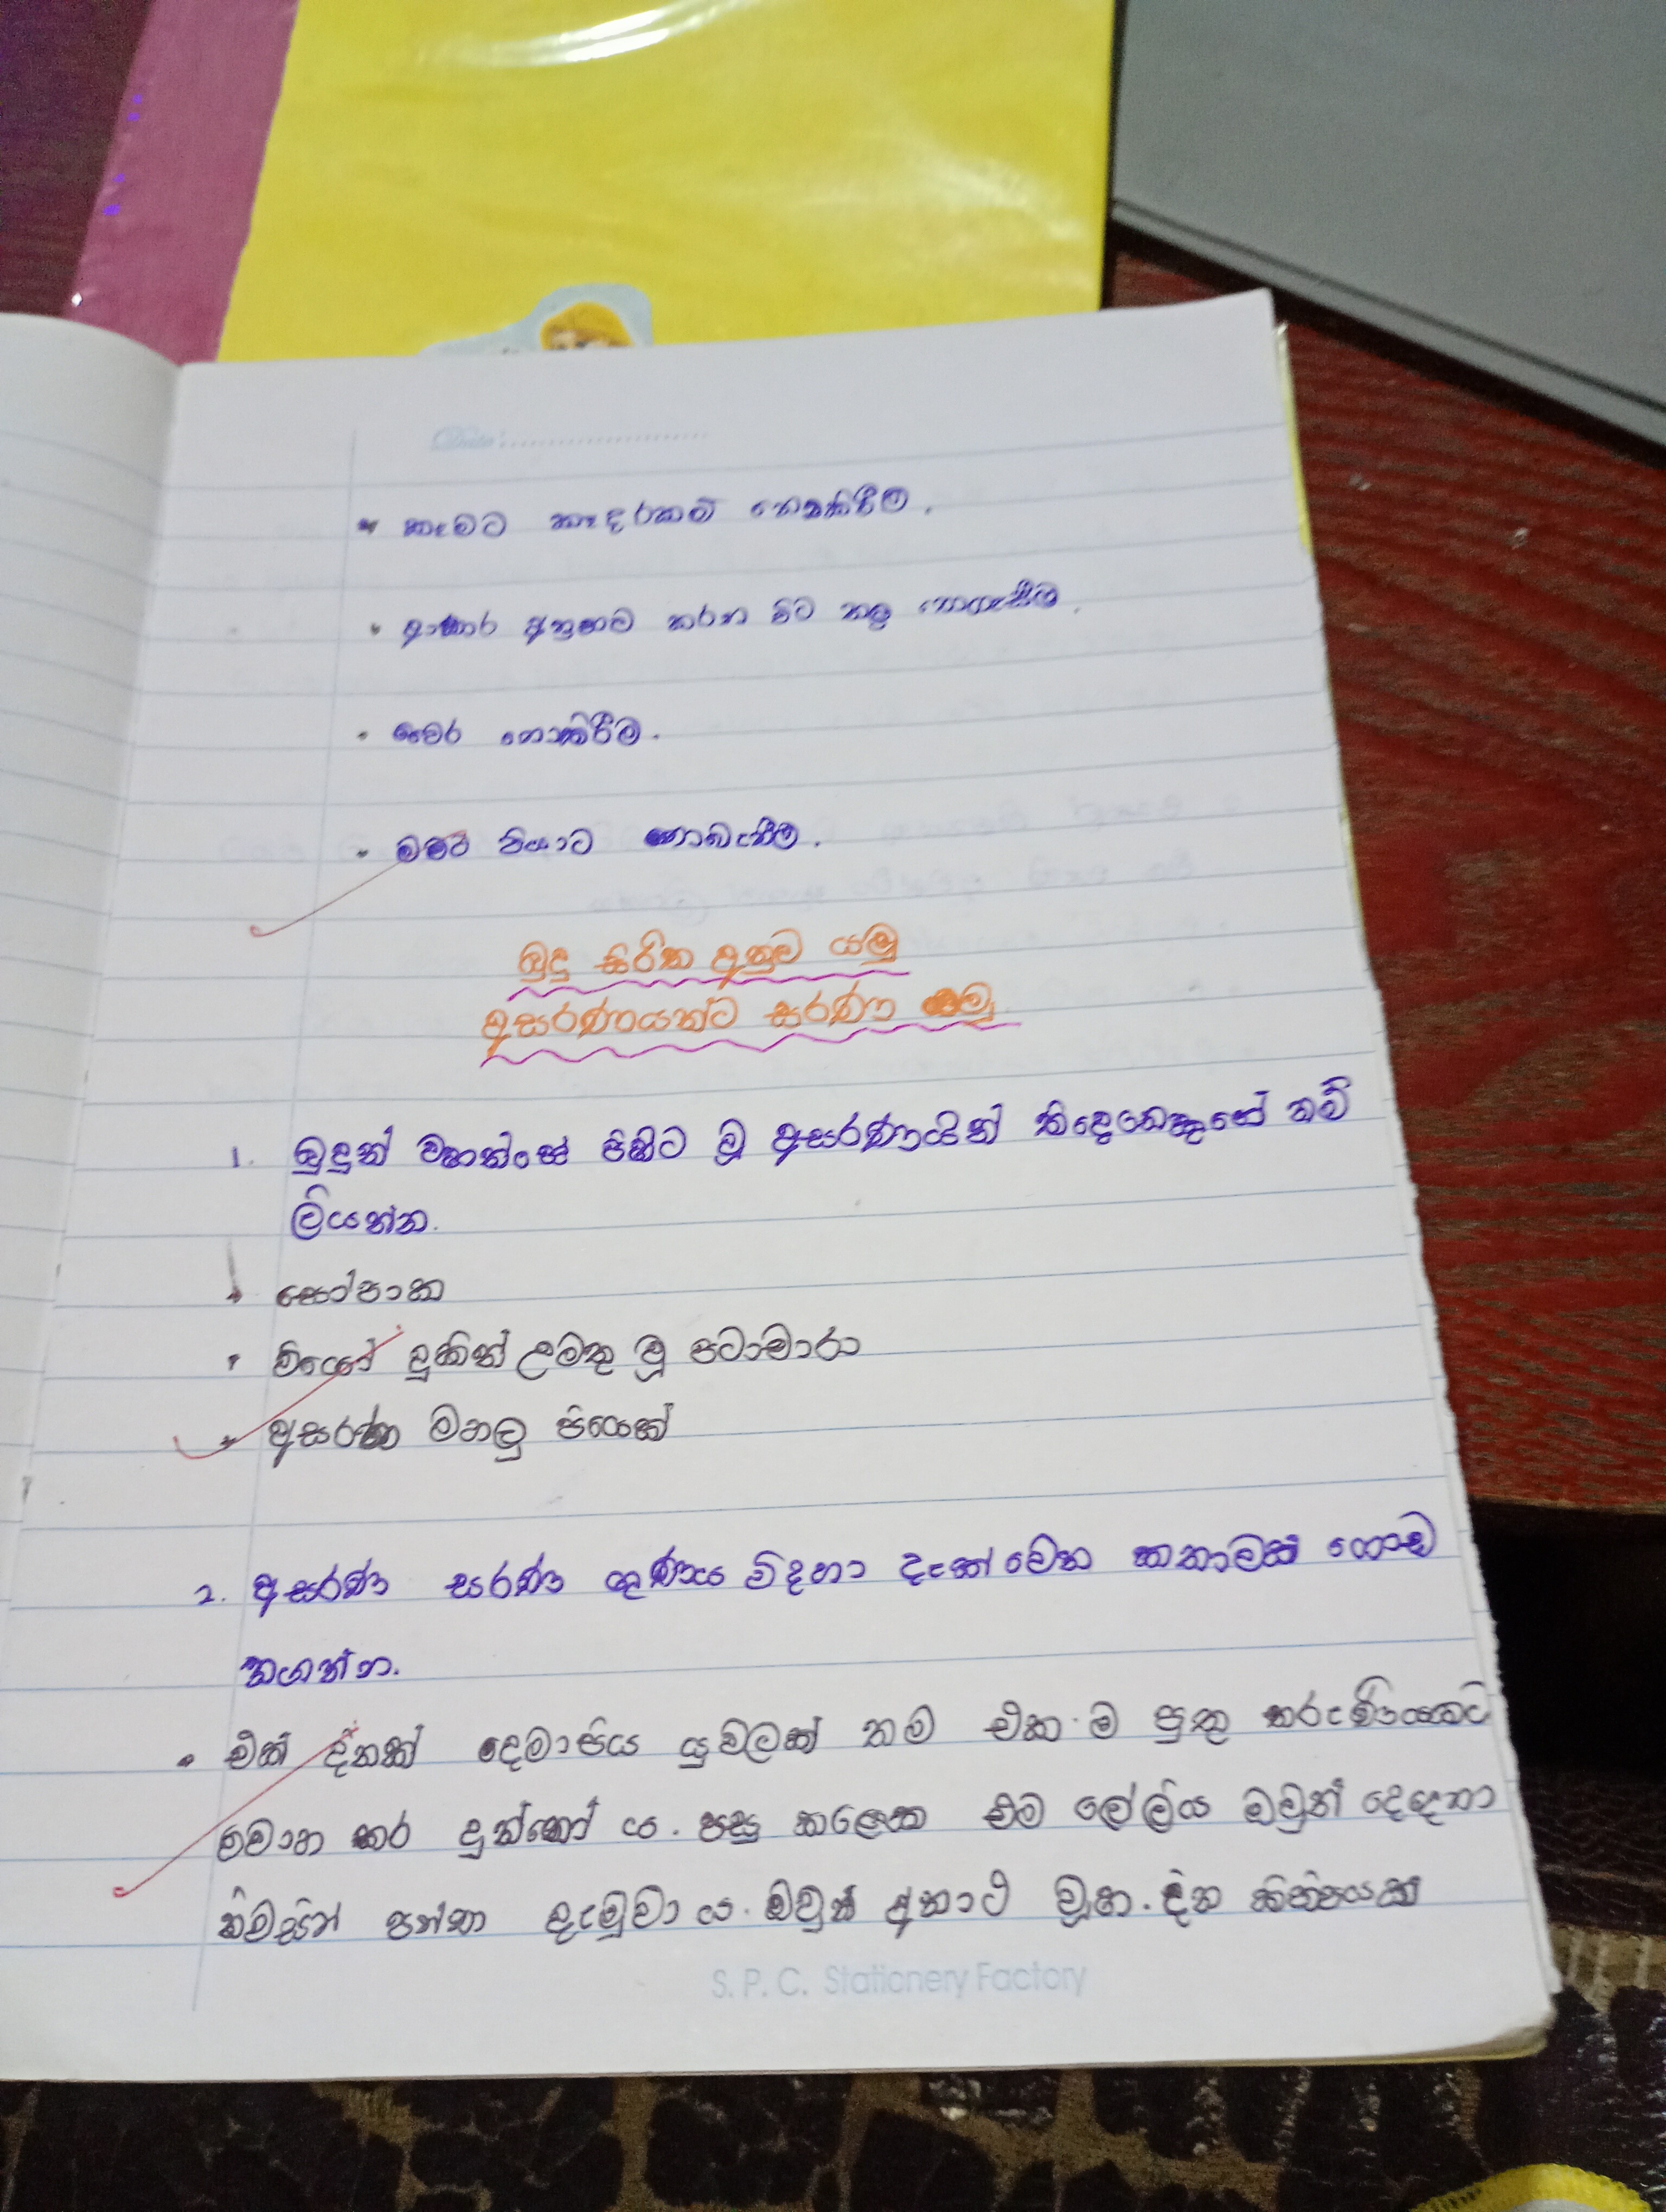 Date:
කෑමට කෑදරකම් නොකිරීම.
ආහාර අනුභව කරන විට කතා නොකිරීම.
වෛර නොකිරීම.
මව් පියාට නොබැනීම.
බුදු සිරිත අනුව යමු
අසරණයන්ට සරණ වෙමු
1. බුදුන් වහන්සේ පිහිට වූ අසරණයින් තිදෙනෙකුගේ නම්
ලියන්න.
සෝපාක
වියෝ දුකින් උමතු වූ පටාචාරා
අසරණ මහලු පියෙක්
2. අසරණ සරණ ගුණය විදහා දැක්වෙන කතාවක් ගොඩ
නගන්න.
එක් දිනක් දෙමාපිය යුවලක් තම එක ම පුතු තරුණියකට
විවාහ කර දුන්නෝ ය. පසු කලෙක එම ලේලිය ඔවුන් දෙදෙනා
නිවසින් පන්නා දැමුවා ය. ඔවුන් අනාථ වූහ. දින කිහිපයක්
S. P. C. Stationery Factory